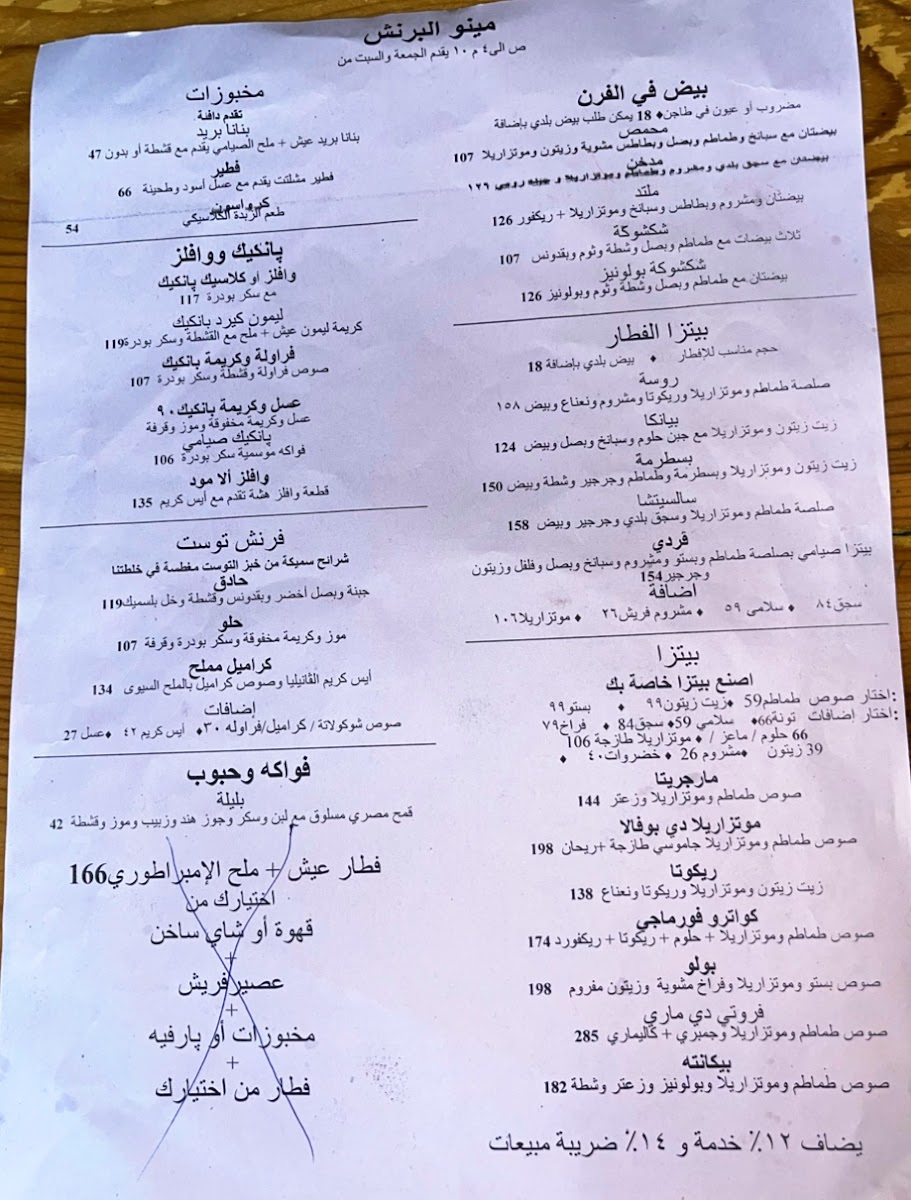 مينو البرنش
ص الى٤ م ١٠ يقدم الجمعة والسبت من
بيض في الفرن
مضروب أو عيون في طاجن♦ 18 يمكن طلب بيض بلدي بإضافة
محمص
بيضتان مع سبانخ وطماطم وبصل وبطاطس مشوية وزيتون وموتزاريلا 107
مدخن
بيضتان مع سجق بلدي ومشروم وطماطم وموتزاريلا و جبنه رومي ١٢٦
ملتد
بيضتان ومشروم وبطاطس وسبانخ وموتزاريلا + ريكفور 126
شكشوكة
ثلاث بيضات مع طماطم وبصل وشطة وثوم وبقدونس 107
شكشوكة بولونيز
بيضتان مع طماطم وبصل وشطة وثوم وبولونيز 126
بيتزا الفطار
حجم مناسب للإفطار ♦ بيض بلدي بإضافة 18
روسة
صلصة طماطم وموتزاريلا وريكوتا ومشروم ونعناع وبيض ١٥٨
بيانكا
زيت زيتون وموتزاريلا مع جبن حلوم وسبانخ وبصل وبيض 124
بسطرمة
زيت زيتون وموتزاريلا وبسطرمة وطماطم وجرجير وشطة وبيض 150
سالسيتشا
صلصة طماطم وموتزاريلا وسجق بلدي وجرجير وبيض 158
فردي
بيتزا صيامي بصلصة طماطم وبستو ومشروم وسبانخ وبصل وفلفل وزيتون
وجرجير154
اضافة
سجق٨٤ ♦ سلامى ٥٩ ♦ مشروم فريش٢٦ ♦ موتزاريلا١٠٦
بيتزا
اصنع بيتزا خاصة بك
:اختار صوص طماطم59 ♦زيت زيتون٩٩ ♦ بستو٩٩
:اختار إضافات تونة66♦ سلامي 59♦ سجق84 ♦ فراخ٧٩
66 حلوم / ماعز / ♦ موتزاريلا طازجة 106
39 زيتون ♦مشروم 26 ♦ خضروات٤٠ ♦
مارجريتا
صوص طماطم وموتزاريلا وزعتر 144
موتزاريلا دي بوفالا
صوص طماطم وموتزاريلا جاموسي طازجة +ريحان 198
ريكوتا
زيت زيتون وموتزاريلا وريكوتا ونعناع 138
كواترو فورماجي
صوص طماطم وموتزاريلا + حلوم + ريكوتا + ريكفورد 174
بولو
صوص بستو وموتزاريلا وفراخ مشوية وزيتون مفروم 198
فروتي دي ماري
صوص طماطم وموتزاريلا وجمبري + كاليماري 285
بيكانته
صوص طماطم وموتزاريلا وبولونيز وزعتر وشطة 182
يضاف ١٢٪ خدمة و ١٤٪ ضريبة مبيعات
مخبوزات
تقدم دافئة
بنانا بريد
بنانا بريد عيش + ملح الصيامي يقدم مع قشطة أو بدون 47
فطير
فطير مشلتت يقدم مع عسل أسود وطحينة 66
كرواسون
طعم الزبدة الكلاسيكي 54
پانكيك ووافلز
وافلز او كلاسيك پانكيك
مع سكر بودرة 117
ليمون كيرد بانكيك
كريمة ليمون عيش + ملح مع القشطة وسكر بودرة119
فراولة وكريمة بانكيك
صوص فراولة وقشطة وسكر بودرة 107
عسل وكريمة بانكيك٩٠
عسل وكريمة مخفوقة وموز وقرفة
پانكيك صيامي
فواكه موسمية سكر بودرة 106
وافلز ألا مود
قطعة وافلز هشة تقدم مع أيس كريم 135
فرنش توست
شرائح سميكة من خبز التوست مغطسة في خلطتنا
حادق
جبنة وبصل أخضر وبقدونس وقشطة وخل بلسميك119
حلو
موز وكريمة مخفوقة وسكر بودرة وقرفة 107
كراميل مملح
أيس كريم الڤانيليا وصوص كراميل بالملح السيوى 134
إضافات
صوص شوكولاتة / كراميل/فراوله ٣٠♦ أيس كريم ٤٢ ♦عسل 27
فواكه وحبوب
بليلة
قمح مصري مسلوق مع لبن وسكر وجوز هند وزبيب وموز وقشطة 42
فطار عيش + ملح الإمبراطوري166
اختيارك من
قهوة أو شاي ساخن
+
عصيرفريش
+
مخبوزات أو پارفيه
+
فطار من اختيارك